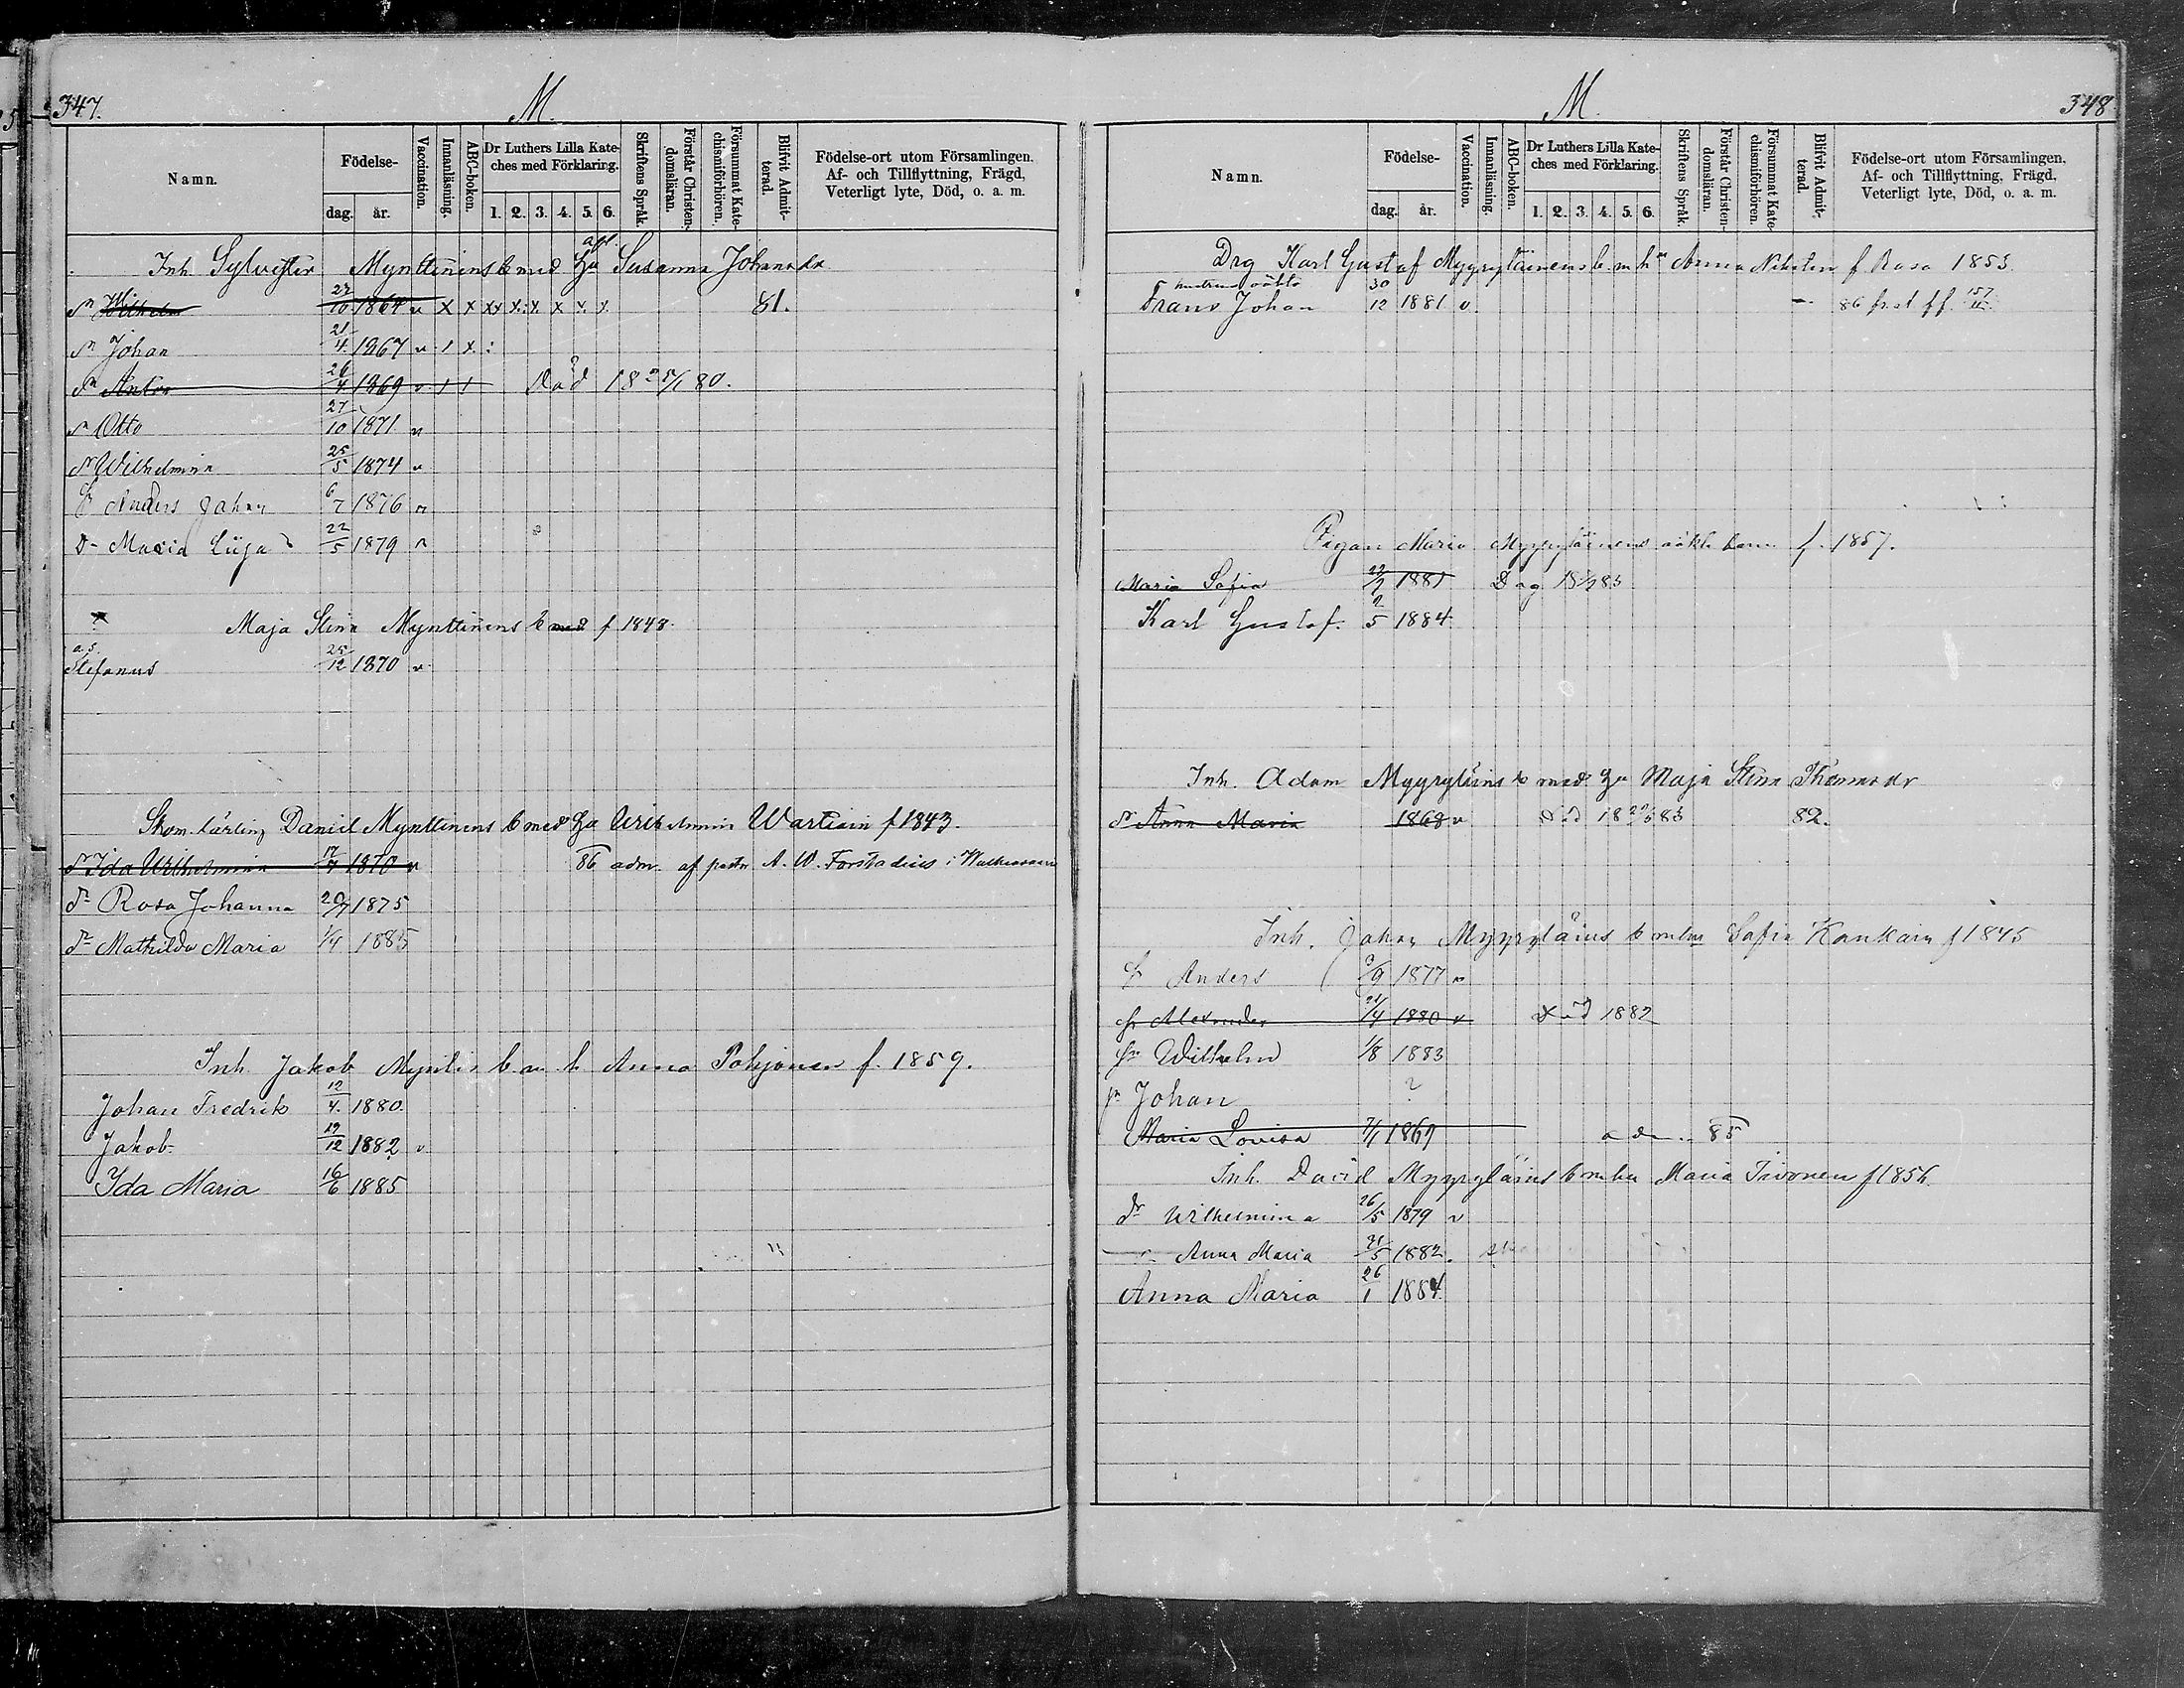 347.
M.
Namn.
Födelse-
dag.
år.
Vaccination.
Innanläsning.
ABC-boken.
Dr Luthers Lilla Kate-
ches med Förklaring.
1. 2. 3. 4. 5. 6.
Skriftens Språk.
Förstår Christen-
domsläran.
Försummat Kate-
chismiförhören.
Blifvit Admit-
terad.
Födelse-ort utom Församlingen.
Af- och Tillflyttning, Frägd,
Veterligt lyte, Död, o. a. m.
Inh. Sylvester Mynttinens b med Hu Susanna Johansdr
Sn Wilhelm 27/10 1864 v x x xx x x x x x 81.
Sn Johan 21/4 1867 v 1 x :
Sn Anton 26/4 1869 v 1 1 Död 18 80.
Sn Otto 27/10 1871 v
Wilhelmina 25/5 1874 v
Anders Johan 6/7 1876 v
D- Maria Liisa 22/5 1879 v
Maja Stina Mynttinens b med f 1848.
a. S.
Stefanus 25/12 1870 v
Skom. lärling Daniel Mynttinens b med Hu Ulrik Annis Wartiain f 1843.
Ida Wilhelmina 17/7 1870 v 86 adm. af pastr A. W. Forstadius i Walkeasaari
Dr Rosa Johanna 20/7 1875
Dr Mathilda Maria 1/4 1885
Inh Jakob Mynti b m h Anna Pohjonen f. 1859.
Johan Fredrik 12/4. 1880.
Jakob. 19/12 1882 v
Ida Maria 16/6 1885
M.
348.
Namn.
Födelse-
dag.
år.
Vaccination.
Innanläsning.
ABC-boken.
Dr Luthers Lilla Kate-
ches med Förklaring.
1. 2. 3. 4. 5. 6.
Skriftens Språk.
Förstår Christen-
domsläran.
Försummat Kate-
chismiförhören.
Blifvit Admit-
terad.
Födelse-ort utom Församlingen.
Af- och Tillflyttning, Frägd,
Veterligt lyte, Död, o. a. m.
Drg Karl Gustaf Myyryläinens b. m hu Anna f Rasa 1853.
hustruns oäkta
Frans Johan 30/12 1881 v. - 86
Pigan Maria Myyryläinens oäkta barn f. 1857.
Maria Sofia 22/7 1881 83
Karl Gustaf. 2/5 1884
Inh. Adam Myyryläins b med Hu Maja Stina Thomasdr
Dr Anna Maria 1868 v Död 18 83 82.
Inh. Johan Myyryläins b m hu Sofia Kankain f 1845
Anders 3/9 1877 v
Sn Alexander 21/4 1880 v Död 1882
Sn Wilhelm 1/8 1883
Sn Johan ?
Maria Lovisa 7/1 1869 adm. 85
Inh. David Myyryläins b m hu Maria Tivonen f 1856.
Dr Wilhelmina 26/5 1879 v
Anna Maria 21/5 1882.
Anna Maria 26/1 1884.